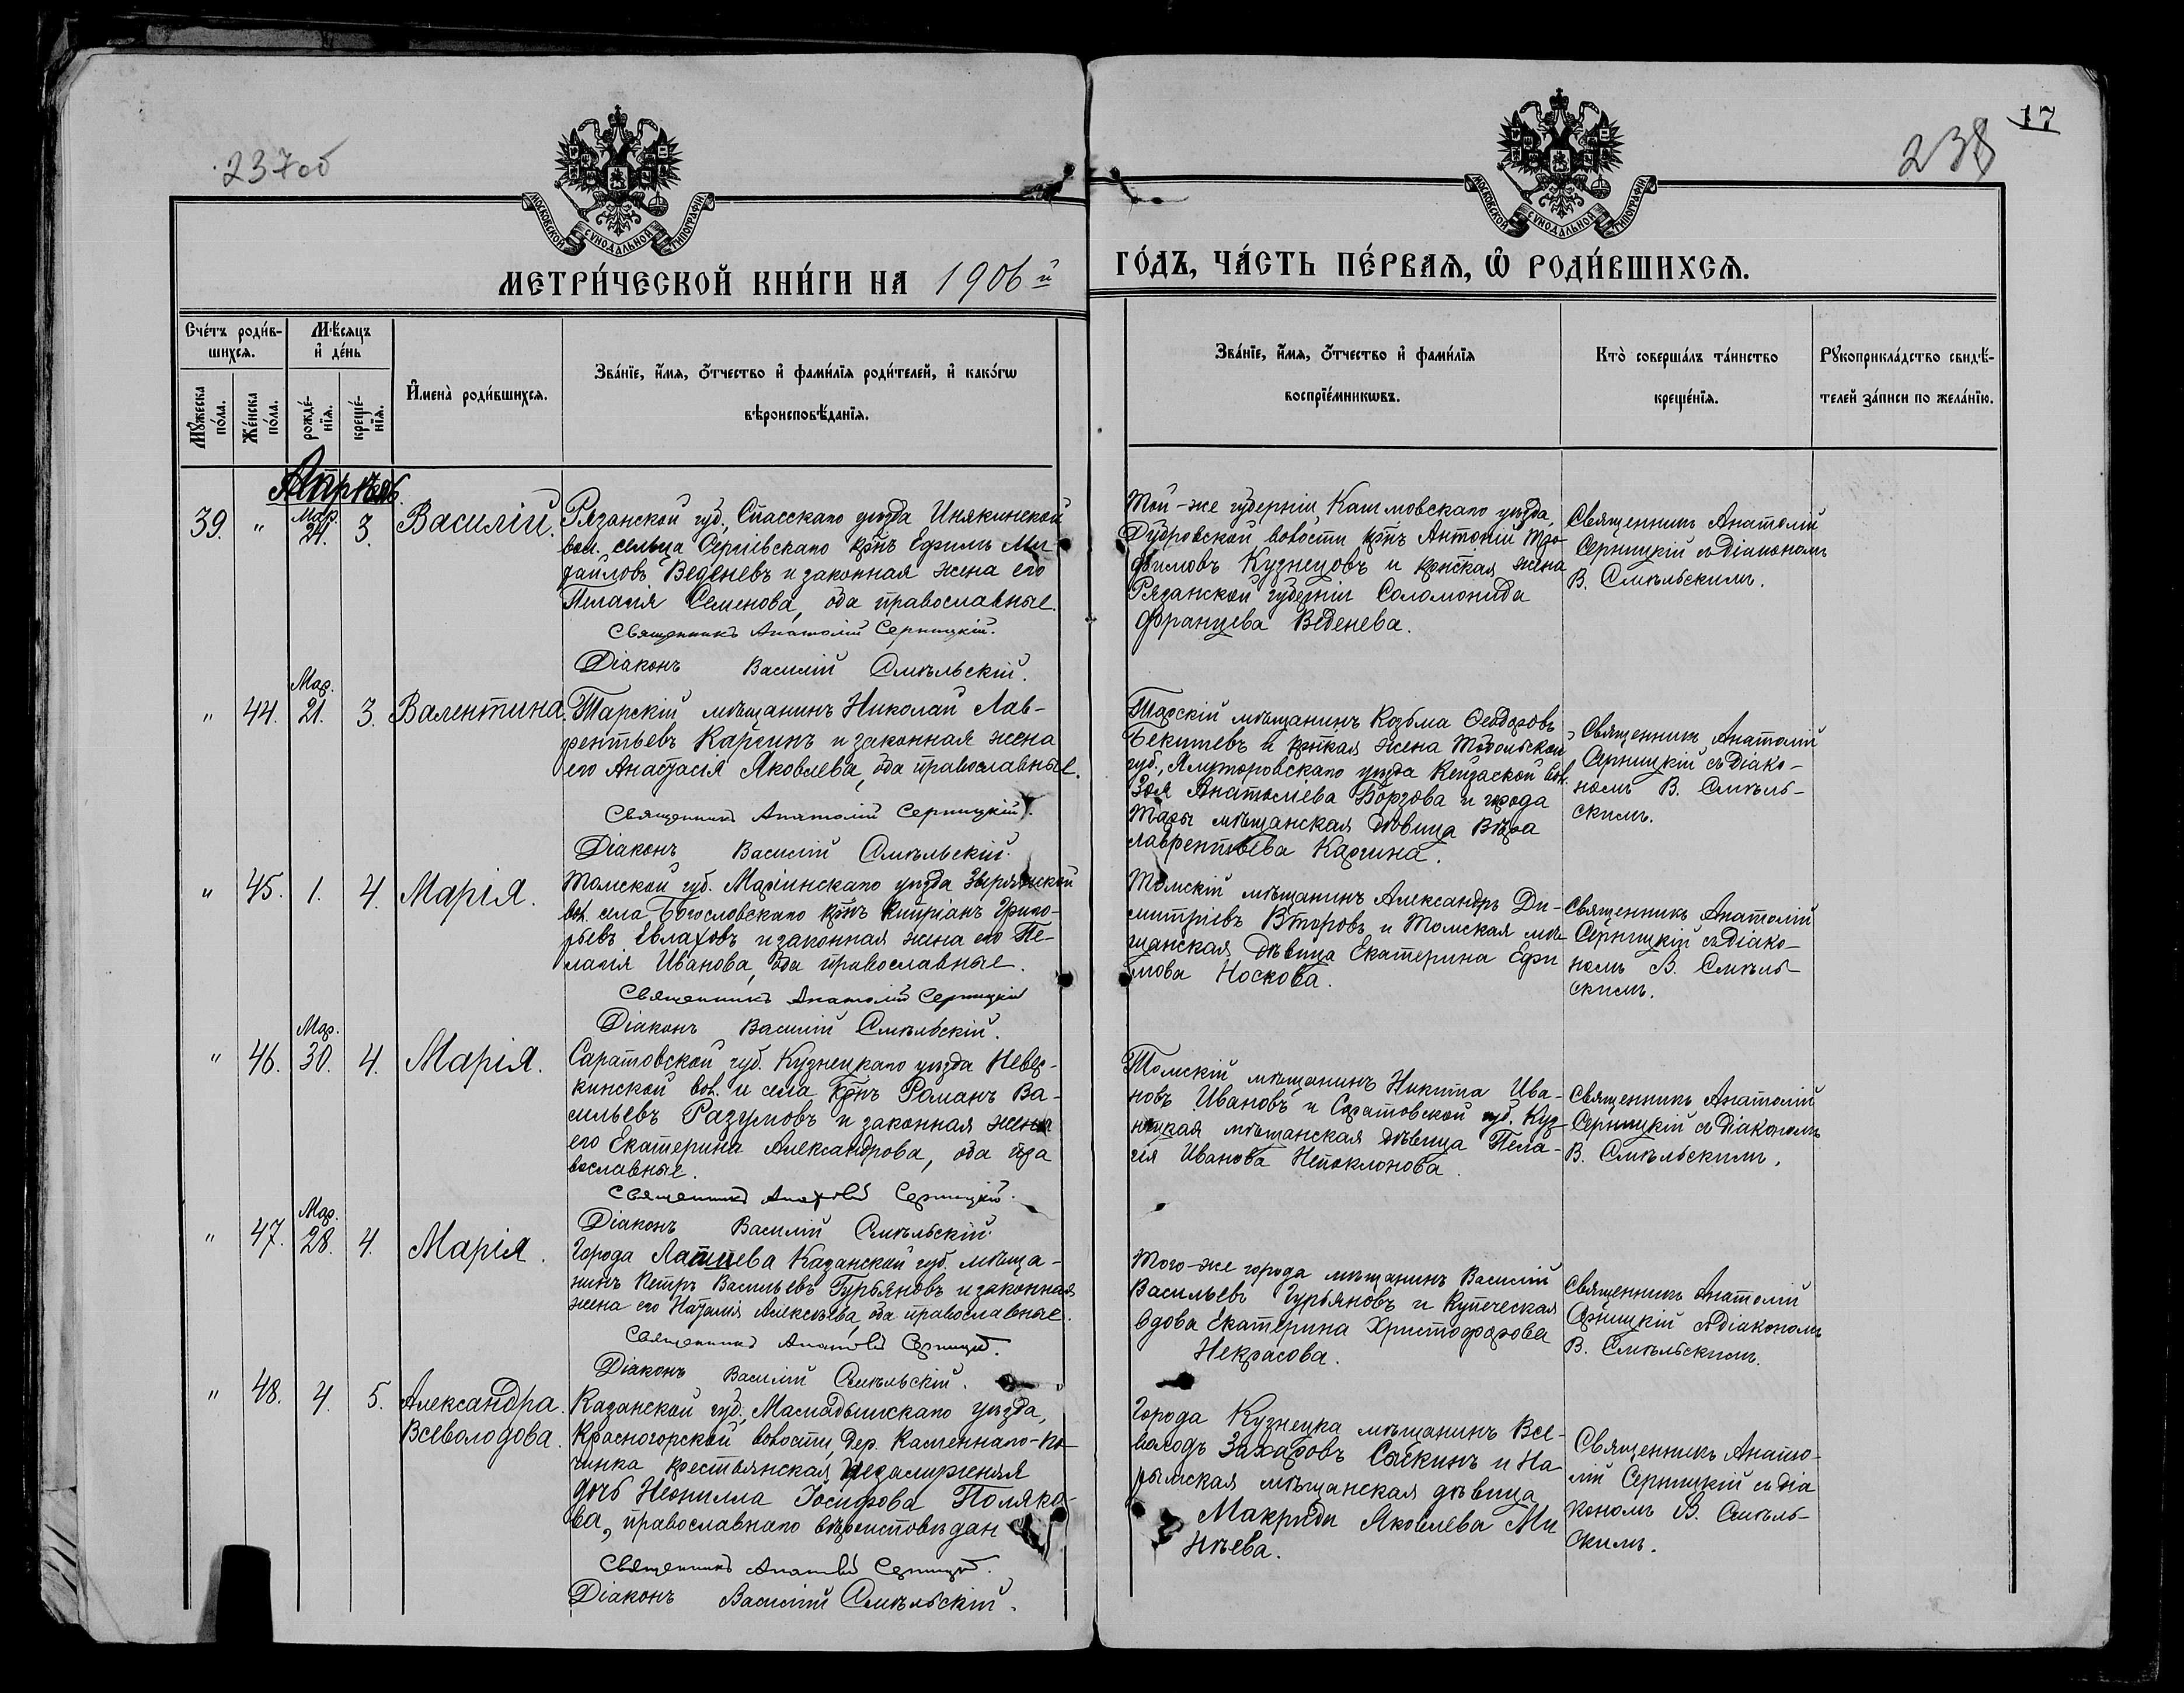 237об
238
17
МОСКОВСКОЙ СУНОДАЛЬНОЙ ТИПОГРАФІИ
МОСКОВСКОЙ СУНОДАЛЬНОЙ ТИПОГРАФІИ
МЕТРИ́ЧЕСКОЙ КНИ́ГИ НА 1906й
ГО́ДЪ, ЧА́СТЬ ПЕ́РВАЯ, Ѡ РОДИ́ВШИХСЯ.
Сче́тъ роди́в-
шихся.
Мꙋ́жеска по́ла.
Же́нска по́ла.
Мѣ́сяцъ и҆ де́нь
рожде́-нїя.
креще́-нїя.
И҆мена̀ роди́вшихся.
Зва́нїе, и҆́мя, ѻ҆́тчество и҆ фами́лїя роди́телей, и҆ како́гѡ
вѣроисповѣ́данїя.
Зва́нїе, и҆́мя, ѻ҆́тчество и҆ фами́лїя
воспрїе́мникѡвъ.
Кто̀ соверша́лъ та́инство
креще́нїя.
Рꙋкоприкла́дство свидѣ́-
телей за́писи по жела́нїю.
Апрѣль.
39. " Мар. 24. 3. Василій.
Рязанской губ., Спасскаго уѣзда Инякинской
вол. сельца Сергіевскаго крнъ Ефимъ Ми-
хайловъ Веденевъ и законная жена его
Пелагія Семенова, оба православные.
Священникъ Анатолій Серницкій.
Діаконъ Василій Смѣльскій.
Той-же губерніи, Касимовскаго уѣзда,
Дубровской волости крнъ Антоній Тро-
фимовъ Кузнецовъ и крнская жена
Рязанской губерніи Соломонида
Францева Веденева.
Священникъ Анатолій
Серницкій съ Діакономъ
В. Смѣльскимъ.
" 44. Мар. 21. 3. Валентина.
Тарскій мѣщанинъ Николай Лав-
рентьевъ Каргинъ и законная жена
его Анастасія Яковлева, оба православные.
Священникъ Анатолій Серницкій.
Діаконъ Василій Смѣльскій.
Тарскій мѣщанинъ Козьма Ѳеодоровъ
Бекишевъ и крнская жена Тобольской
губ., Ялуторовскаго уѣзда вол.
Зоя Анатоліева Борзова и города
Тары мѣщанская дѣвица Вѣра
Лаврентьева Каргина.
Священникъ Анатолій
Серницкій съ Діако-
номъ В. Смѣль-
скимъ.
" 45. 1. 4. Марія.
Томской губ. Маріинскаго уѣзда Зырянской
вол. села Богословскаго крнъ Кипріанъ Григо-
рьевъ Евлаховъ и законная жена его Пе-
лагія Иванова, оба православные.
Священникъ Анатолій Серницкій
Діаконъ Василій Смѣльскій.
Томскій мѣщанинъ Александръ Ди-
митріевъ Второвъ и Томская мѣ-
щанская дѣвица Екатерина Ефи
мова Носкова.
Священникъ Анатолій
Серницкій съ Діако-
номъ В. Смѣль-
скимъ.
" 46. Мар. 30. 4. Марія.
Саратовской губ. Кузнецкаго уѣзда Невер-
кинской вол. и села крнъ Романъ Ва-
сильевъ Разумовъ и законная жена
его Екатерина Александрова, оба пра
вославные.
Священникъ Анатолій Серницкій.
Діаконъ Василій Смѣльскій.
Томскій мѣщанинъ Никита Ива-
новъ Ивановъ и Саратовской губ. Куз-
нецкая мѣщанская дѣвица Пела-
гія Иванова Непоклонова.
Священникъ Анатолій
Серницкій съ Діакономъ
В. Смѣльскимъ.
" 47. Мар. 28. 4. Марія.
Города Лаишева Казанской губ. мѣща-
нинъ Петръ Васильевъ Гурьяновъ и законная
жена его Наталія Алексѣева, оба православные.
Священникъ Анатолій Серницкій.
Діаконъ Василій Смѣльскій.
Того-же города мѣщанинъ Василій
Васильевъ Гурьяновъ и купеческая
вдова Екатерина Христофорова
Некрасова.
Священникъ Анатолій
Серницкій съ діакономъ
В. Смѣльскимъ.
" 48. 4. 5. Александра.
Всеволодова.
Казанской губ., Мамадышскаго уѣзда,
Красногорской волости, Дер. Каменнаго-По-
чинка крестьянская незамужняя
дочь Неонилла Іосифова Поляко-
ва, православнаго вѣроисповѣдан
Священникъ Анатолій Серницкій.
Діаконъ Василій Смѣльскій.
Города Кузнецка мѣщанинъ Все-
володъ Захаровъ Сыскинъ и На
рымская мѣщанская дѣвица
Макрида Яковлева Ми
нѣева.
Священникъ Анато-
лій Серницкій съ діа
кономъ В. Смѣль-
скимъ.